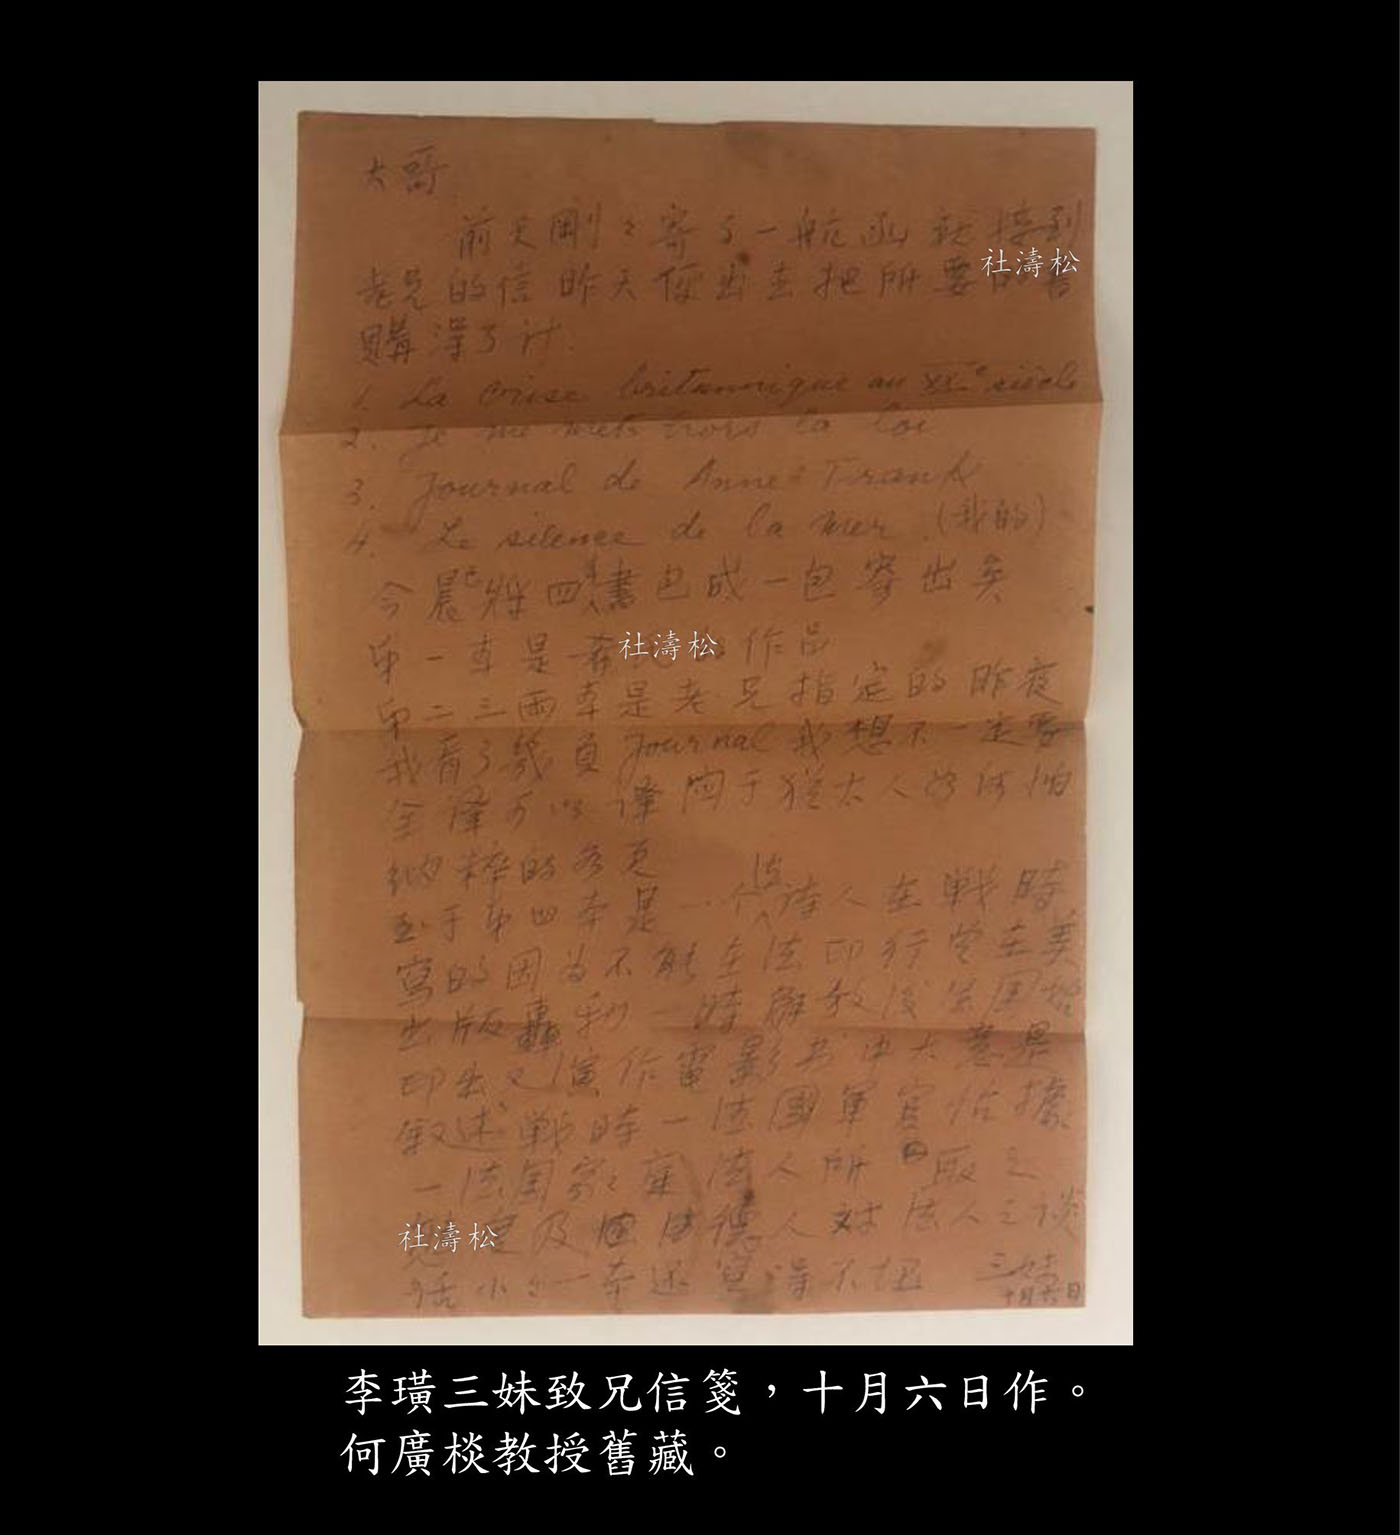 大哥
前天剛々寄了一航函就接到
老兄的信昨天便出去把所要的書
購得了计.
1. La crise britannique au XXe siècle
2. Je me mets hors la loi
3. Journal de Anne Frank
4. Le silence de la mer (我的)
今晨已將四本書包成一包寄出矣
第一本是 作品
第二三兩本是老兄指定的昨夜
我看了幾頁Journal我想不一定要
全譯可以譯関于猶太人 怕
納粹的各頁
至于第四本是一个法诗人在戰時
寫的因为不能在法印行曾在美
出版轟動一時解放後法国始
印出又演作電影书中大意是
叙述戰時一法國軍官佔據
一法国家々庭法人所 取之
態度及 德人対法人之谈
話小々一本还寫得不坦
三妹
十月六日
社濤松
社濤松
社濤松
李璜三妹致兄信箋，十月六日作。
何廣棪教授舊藏。